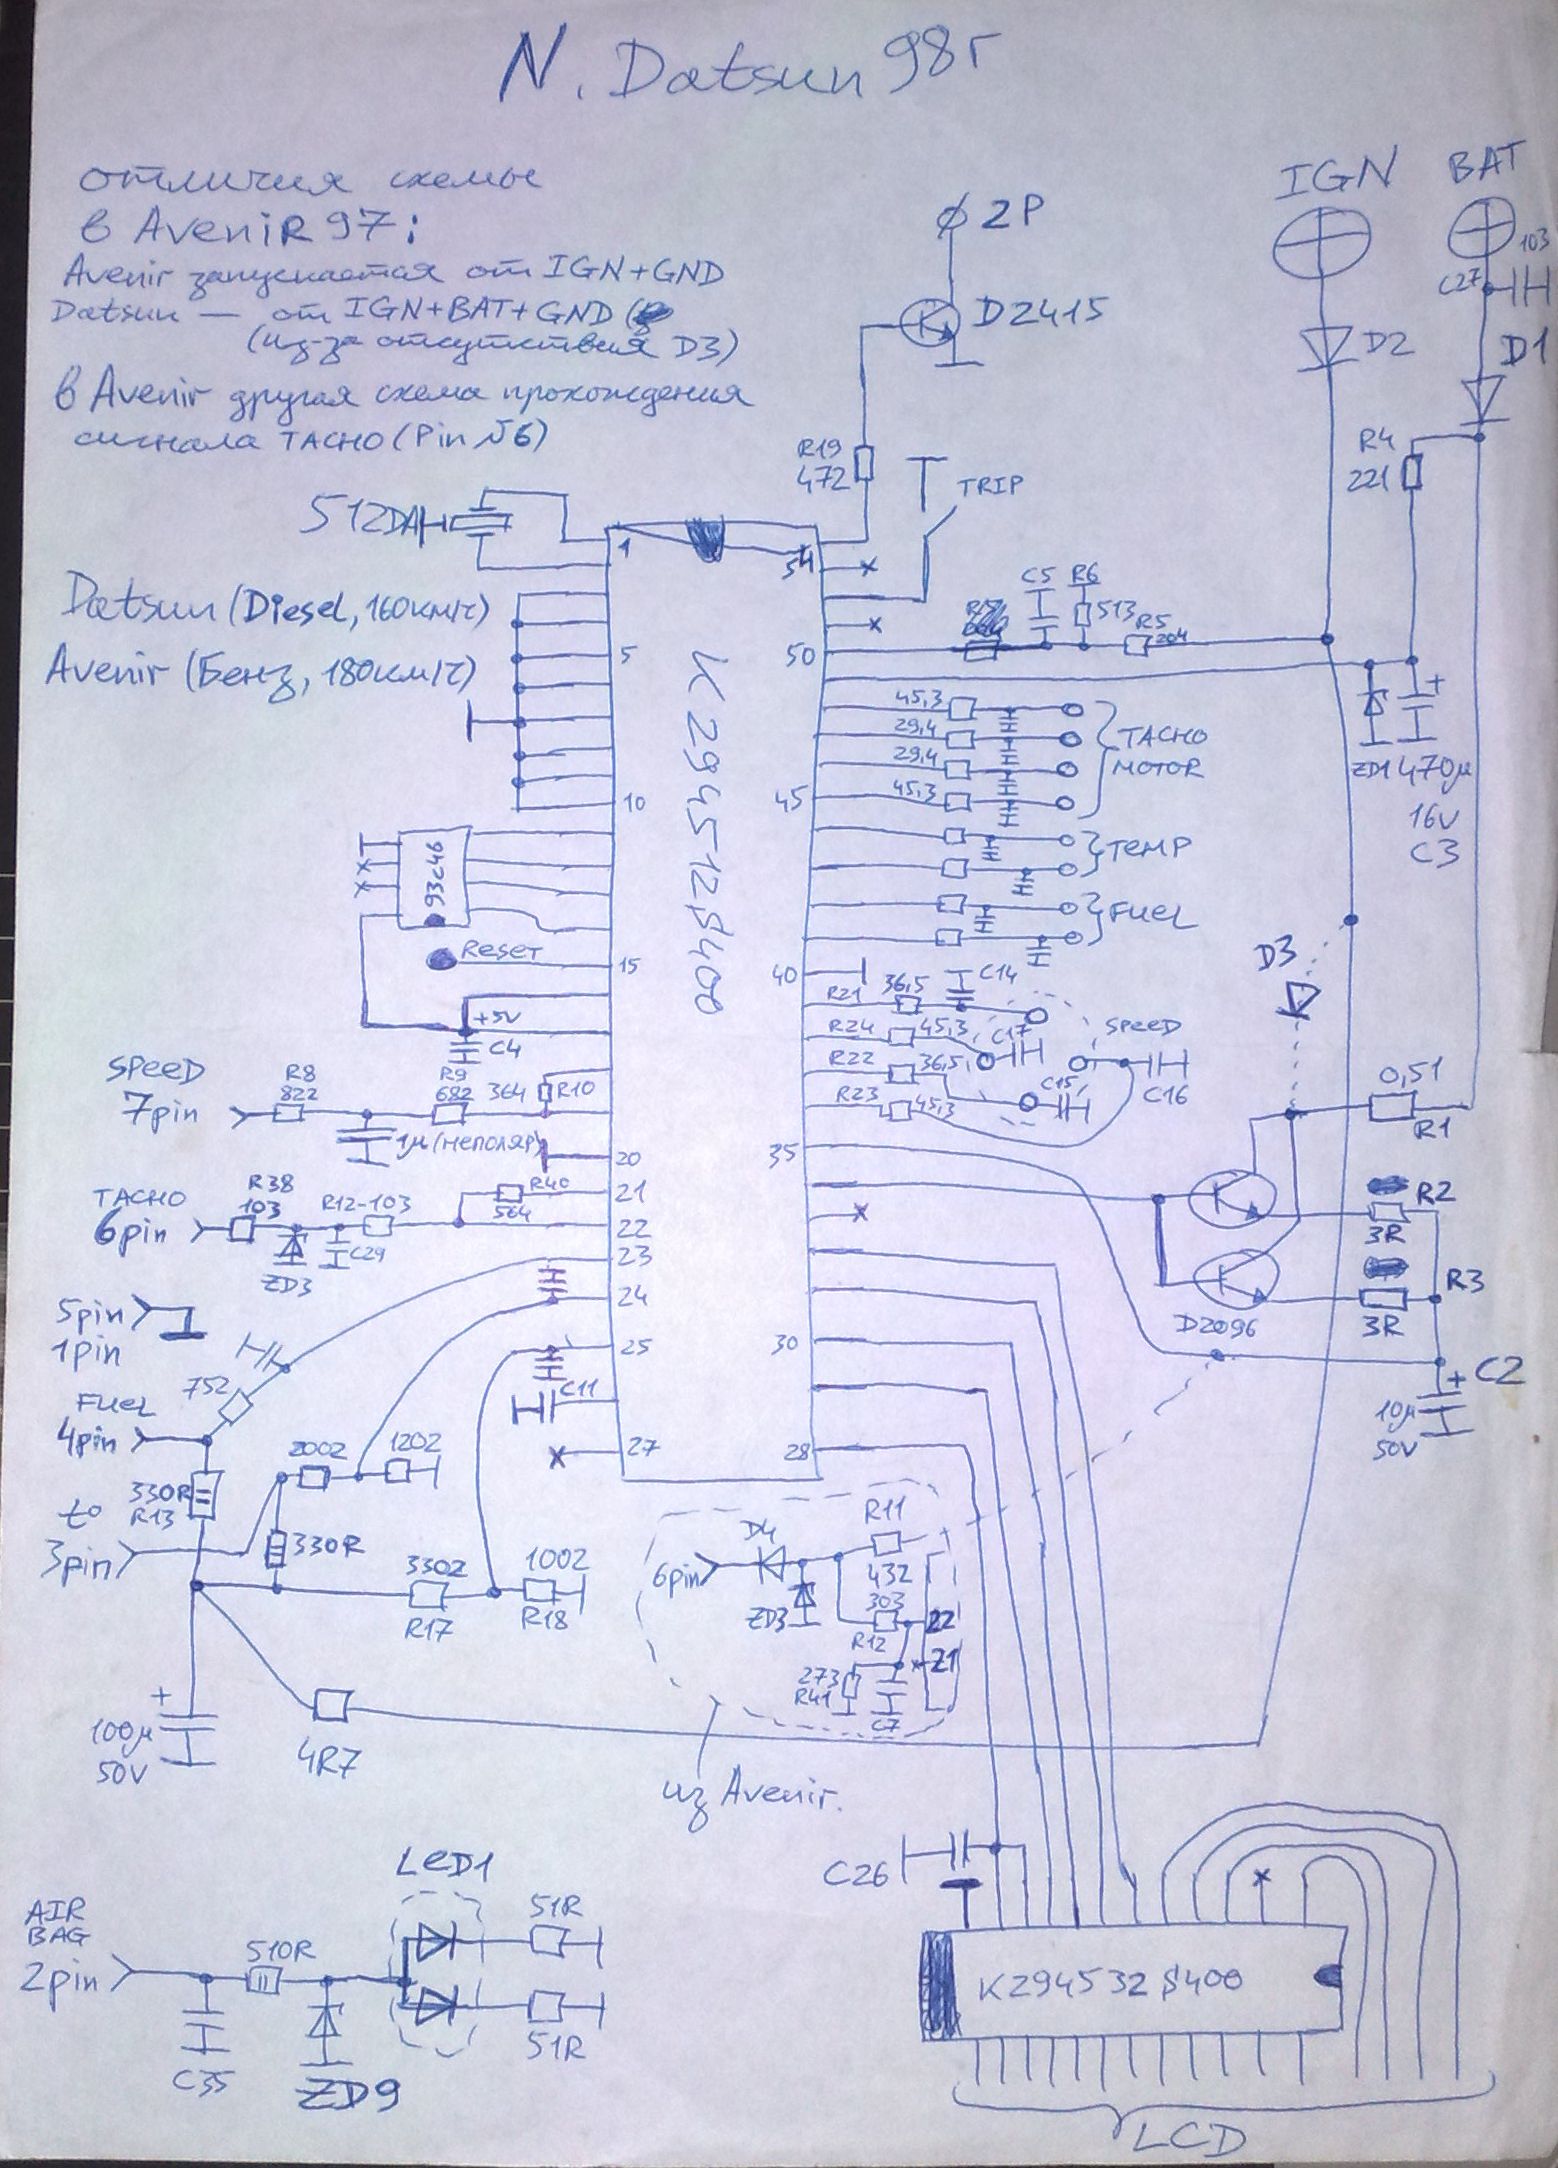 N. Datsun 98г
отличия схемы
в AveniR 97:
Avenir запускается от IGN+GND
Datsun — от IGN+BAT+GND
(из-за отсутствия D3)
в Avenir другая схема прохождения
сигнала TACHO (Pin №6)
2P
D2415
IGN
BAT
103
C27
D2
D1
R4
221
R19
472
TRIP
512DA
1
54
Datsun (Diesel, 160км/ч)
Avenir (Бенз, 180км/ч)
5
50
C5
R6
513
R5
204
K2945128400
45,3
29,4
29,4
45,3
TACHO
MOTOR
ZD1
470µ
16V
C3
10
45
TEMP
FUEL
93c46
Reset
15
40
+5V
C4
R21
36,5
C14
R24
45,3
C17
SPEED
R22
36,5
R23
45,3
C15
C16
D3
0,51
R1
SPEED
7pin
R8
822
R9
682
364
R10
1µ (неполяр)
20
35
TACHO
6pin
R38
103
R12-103
R40
564
21
22
ZD3
C29
23
24
R2
3R
R3
3R
D2096
5pin
1pin
25
30
C2
10µ
50V
752
C11
FUEL
4pin
27
28
2002
1202
330R
R13
t°
3pin
330R
3302
R17
1002
R18
6pin
D4
ZD3
R11
432
303
R12
22
21
273
R41
C7
100µ
50V
4R7
из Avenir.
C26
LED1
AIR
BAG
2pin
510R
51R
51R
C35
ZD9
K294532 8400
LCD